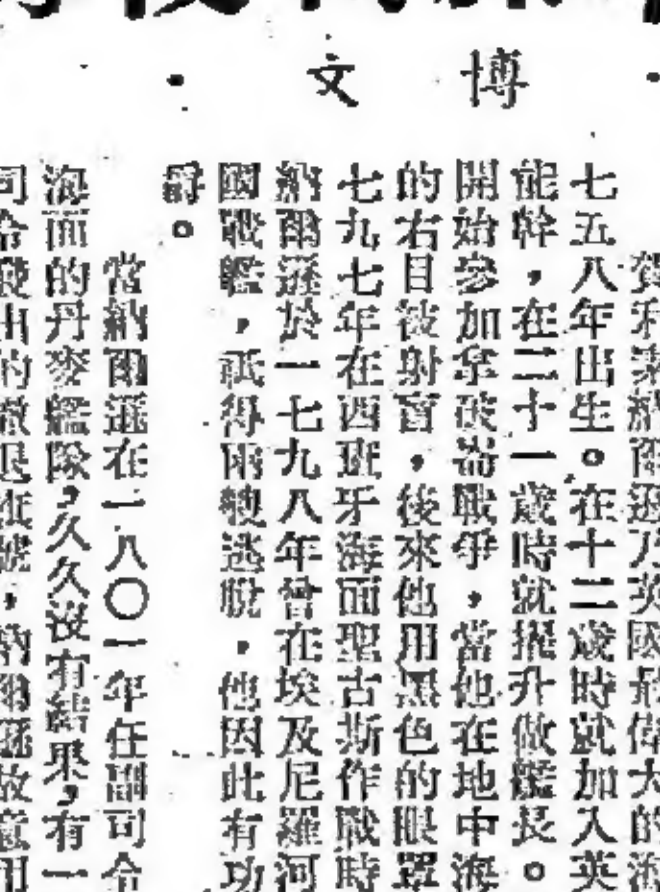 博文
賀利素納爾遜乃英國最偉大的海
七五八年出生。在十二歲時就加入英
能幹,在二十一歲時就擢升做艦長。
開始參加拿破崙戰爭,當他在地中海
的右目被射盲,後來他用黑色的眼罩
七九七年在西班牙海面聖古斯作戰時
納爾遜於一七九八年曾在埃及尼羅河
國戰艦,祇得兩艘逃脫,他因此有功
爵。
當納爾遜在一八〇一年任副司令
海面的丹麥艦隊,久久沒有結果,有一
司令發出的撤退旗號,納爾遜故意用